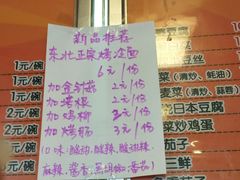 新品推荐
东北正宗烤冷面
6元/份
加金针菇 2元/份
加培根 2元/份
加鸡柳 3元/份
加烤肠 3元/份
口味:酸甜,酸辣,酸甜辣,
麻辣,酱香,黑胡椒,番茄)
1元/碗
1元/碗
2元/碗
2元/碗
2元/碗
2元/碗
菜(清炒、蚝油)
(清炒)
日本豆腐
菜炒鸡蛋
茄子
三鲜